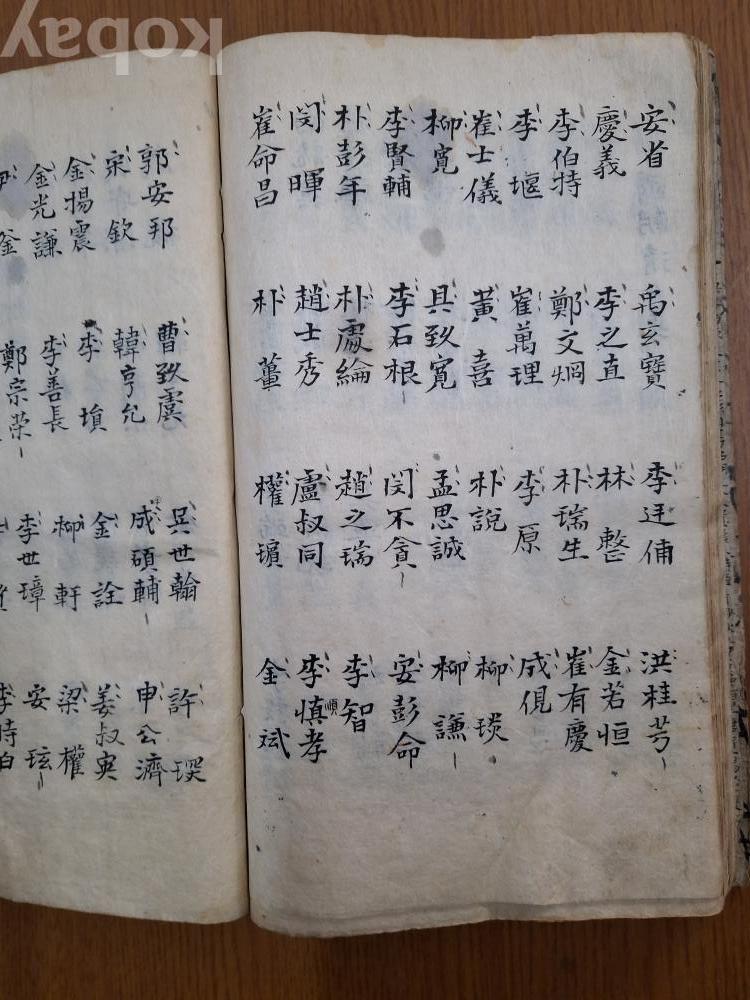 安省 禹玄寶 李 洪桂芳
慶義 李之直 林整 金若恒
李伯特 鄭文烱 朴瑞生 崔有慶
李堰 崔萬理 李原 成俔
崔士儀 黃喜 朴說 柳琰
柳寬 具致寬 孟思誠 柳謙
李賢輔 李石根 閔不貪 安彭命
朴彭年 朴處綸 趙之瑞 李智
閔暉 趙士秀 盧叔同 李慎孝 順
崔命昌 朴薑 權璸 金斌
郭安邦 曹致虞 吳世翰 許琛
宋欽 韓亨允 成碩輔 申公濟
金揚震 李塤 金詮 姜叔突
金光謙 李善長 柳軒 梁權
尹釜 鄭宗榮 李世璋 安玹
李時白
kobay